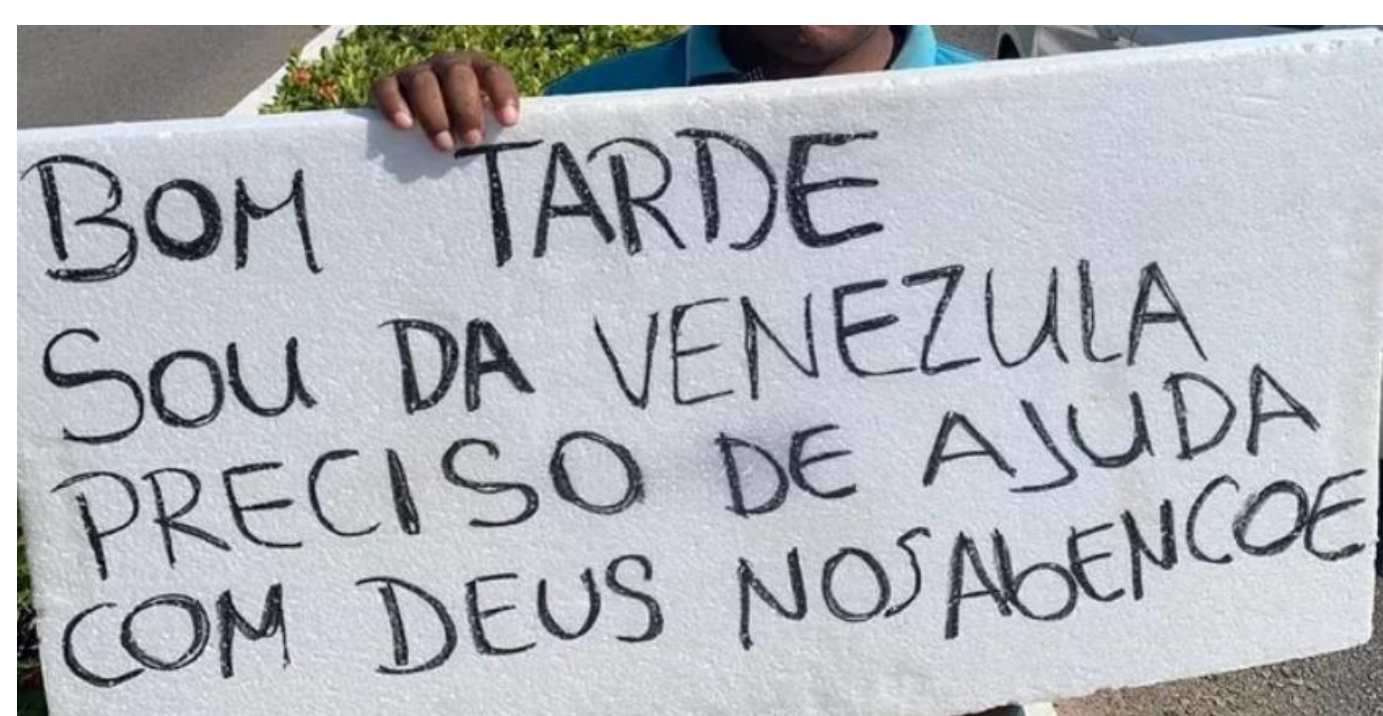 BOM TARDE
SOU DA VENEZULA
PRECISO DE AJUDA
COM DEUS NOS AbENCOE